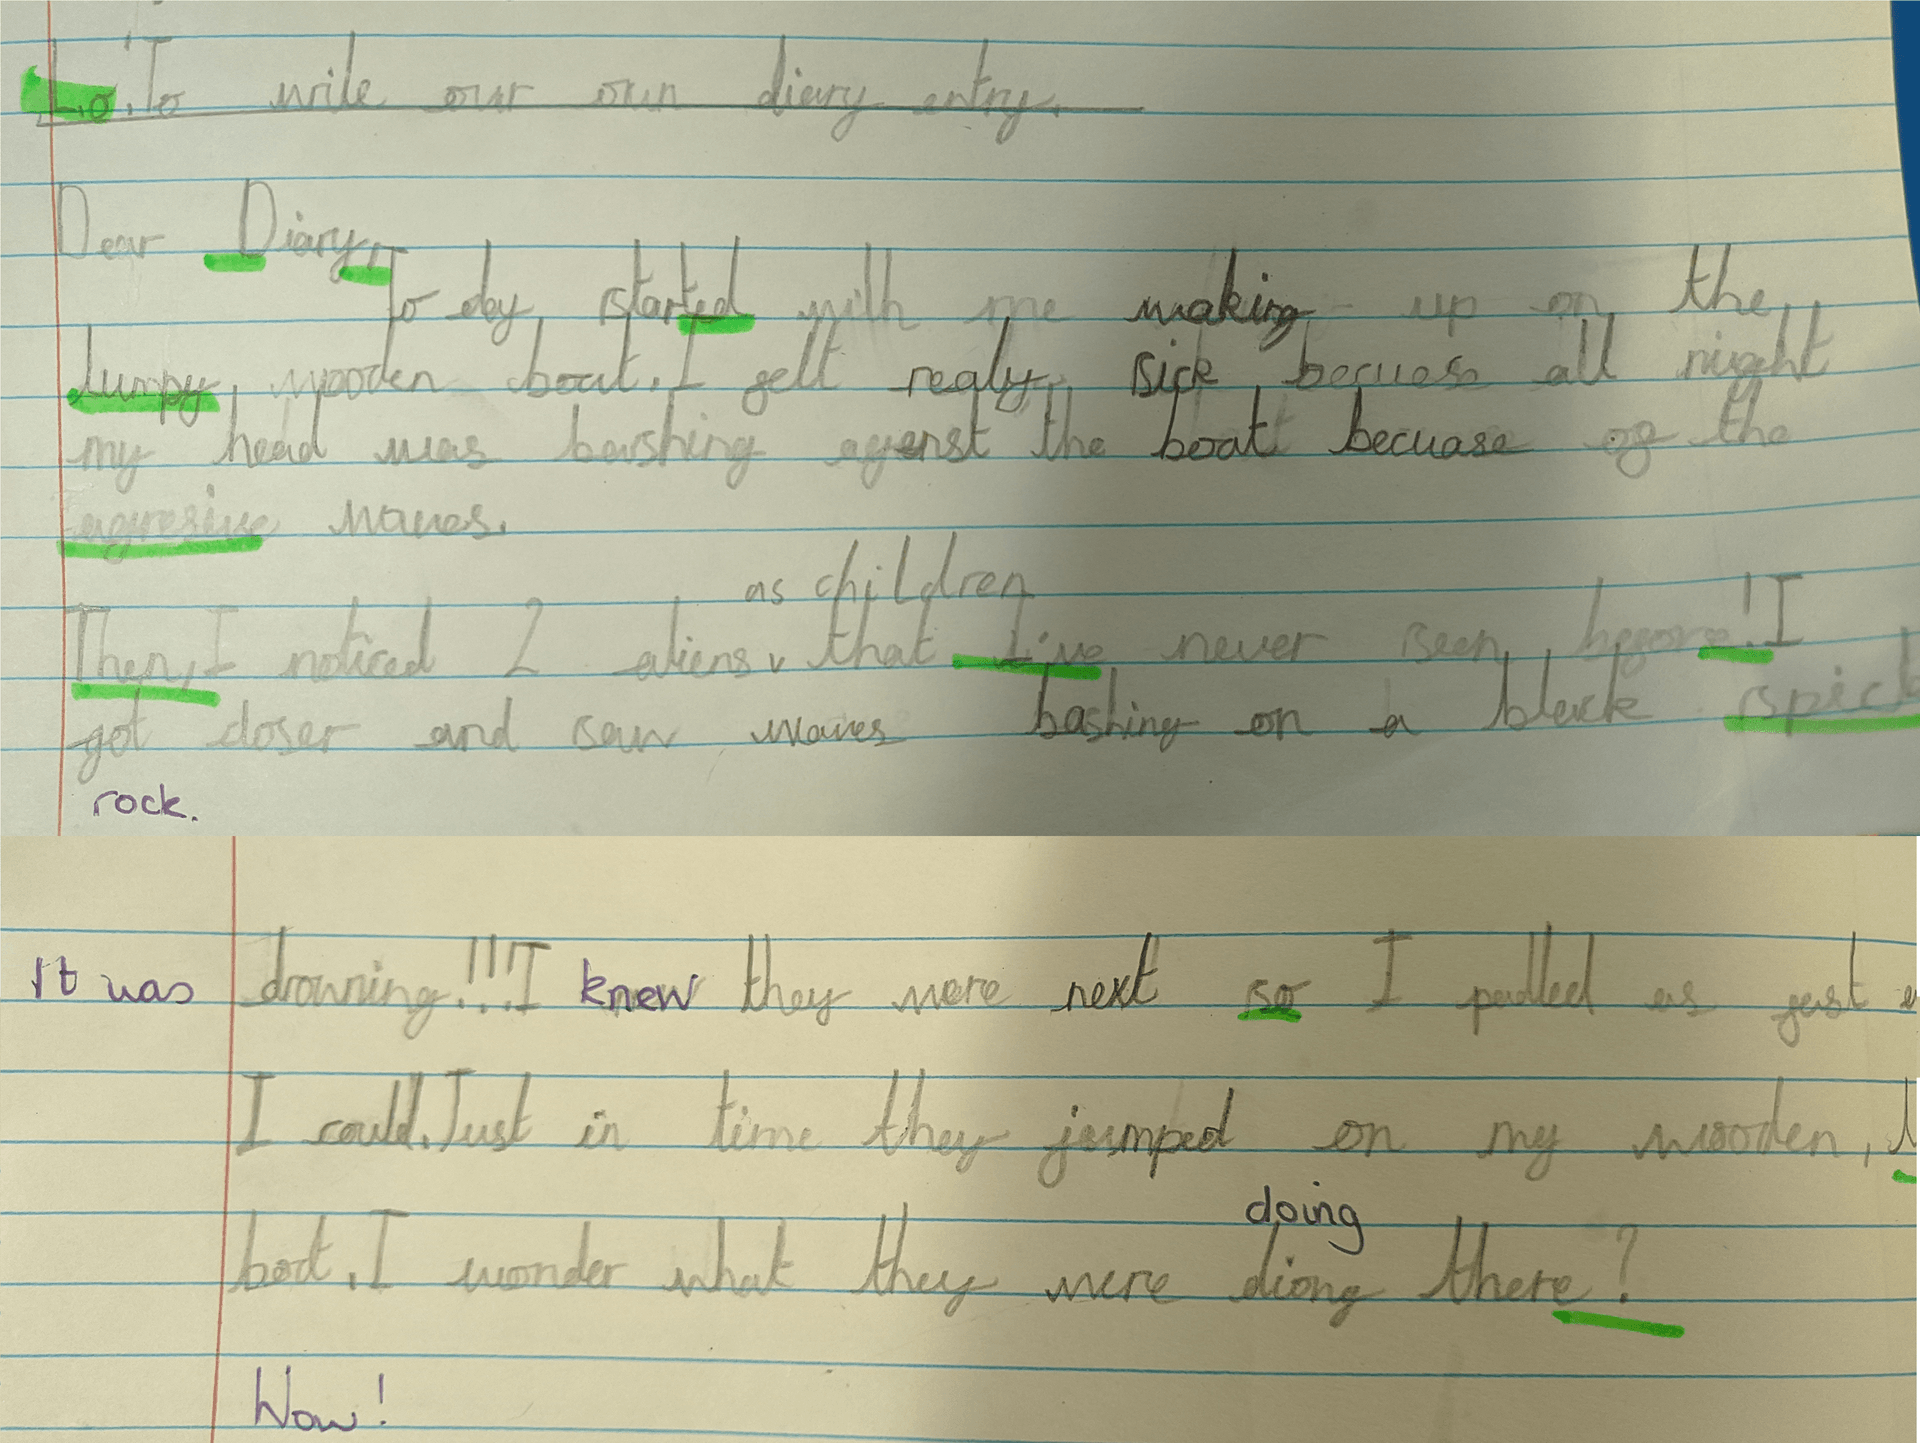 Lo: To write our own diary entry.
Dear Diary,
To day started with me waking up on the
lumpy, wooden boat. I felt realy sick becuese all night
my head was bashing agenst the boat becuase of the
agresive waves.
as children
Then, I noticed 2 aliens, that I've never seen before! I
got closer and saw waves bashing on a black
rock.
It was drowning!!! I knew they were next so I padled as fast
I could. Just in time they jumped on my wooden,
boat. I wonder what they were diong there?
doing
Wow!